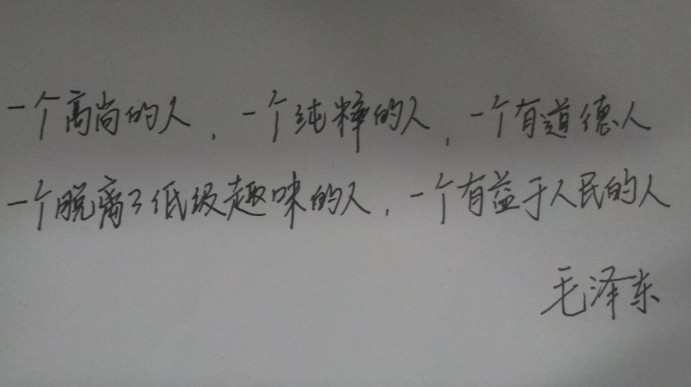 一个高尚的人，一个纯粹的人，一个有道德人
一个脱离了低级趣味的人，一个有益于人民的人
毛泽东